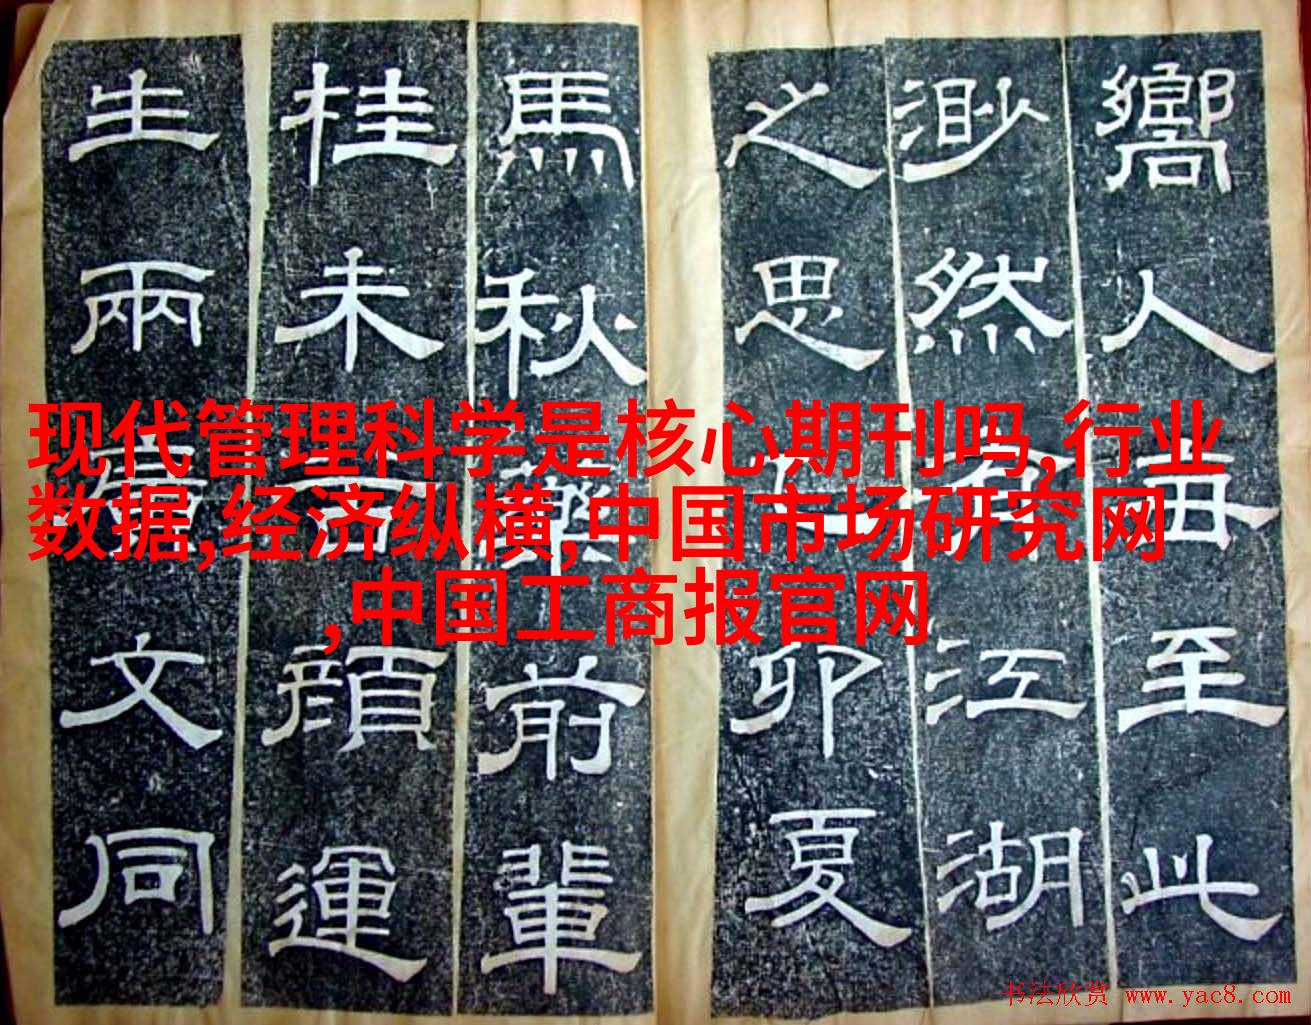 现代管理科学是核心期刊吗,行业
数据,经济纵横,中国市场研究网
,中国工商报官网
嚮人每至此
渺然有江湖
之思卯夏
馬秋藥前輩
桂未顏運
生兩文同
书法欣赏 www.yac8.com